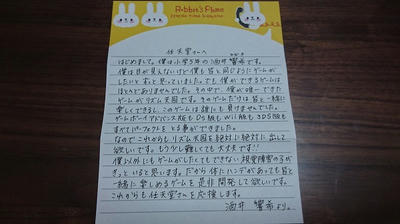 Rabbit's Phone
任天堂さんへ
はじめまして。僕は小学5年の酒井響希です。
僕は目が見えないけど僕も皆と同じようにゲームが
したいとずっと思っていました。でも僕ができるゲームは
ほとんどありませんでした。その中で、僕が唯一できた
ゲームがリズム天国です。そのゲームだけは皆と一緒に
楽しくできるし、このゲームは誰にも負けませんでした。
ゲームボーイアドバンス版も DS版も Wii版も 3DS版も
すべてパーフェクトをとる事ができました。
なのでこれからもリズム天国を絶対に絶対に出して
欲しいです。もう少し難しくても大丈夫です!!
僕以外にもゲームがしたくてもできない視覚障害の子が
きっといると思います。だから体にハンデがあっても皆と
一緒に楽しめるゲームを是非開発して欲しいです。
これからも任天堂さんを応援します。
酒井 響希より。